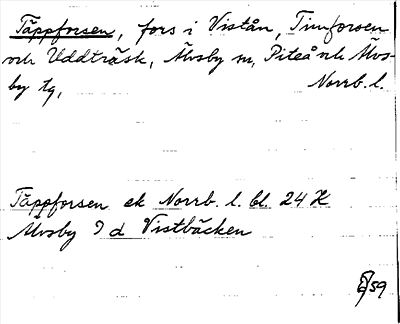 Täppforsen, fors i Vistån, Timforsen
och Uddträsk, Älvsby sn, Piteå och Älvs-
by tg, Norrb. l.
Täppforsen ek Norrb. l. bl. 24 K
Älvsby 9 d Vistbäcken
59